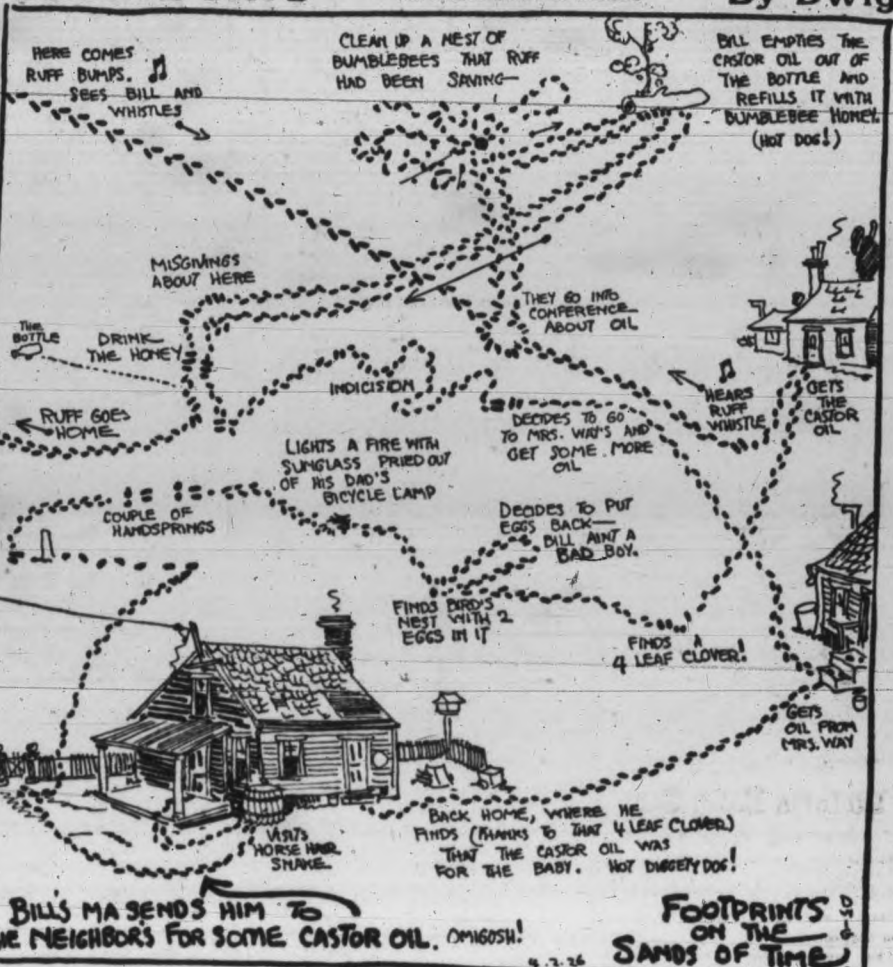 By Dwig
HERE COMES
RUFF BUMPS.
SEES BILL AND
WHISTLES
CLEAN UP A NEST OF
BUMBLEBEES THAT RUFF
HAD BEEN SAVING—
BILL EMPTIES THE
CASTOR OIL OUT OF
THE BOTTLE AND
REFILLS IT WITH
BUMBLEBEE HONEY.
(HOT DOG!)
MISGIVINGS
ABOUT HERE
THE
BOTTLE
DRINK
THE HONEY
THEY GO INTO
CONFERENCE
ABOUT OIL
RUFF GOES
HOME
INDICISION
DECIDES TO GO
TO MRS. WAYS AND
GET SOME MORE
OIL
HEARS
RUFF
WHISTLE
GETS
THE
CASTOR
OIL
LIGHTS A FIRE WITH
SUNGLASS PRIED OUT
OF HIS DAD'S
BICYCLE LAMP
COUPLE OF
HANDSPRINGS
DECIDES TO PUT
EGGS BACK—
BILL AINT A
BAD BOY.
FINDS BIRD'S
NEST WITH 2
EGGS IN IT
FINDS A
4 LEAF CLOVER!
GETS
OIL FROM
MRS. WAY
VISITS
HORSE HAIR
SNAKE.
BACK HOME, WHERE HE
FINDS (THANKS TO THAT 4 LEAF CLOVER)
THAT THE CASTOR OIL WAS
FOR THE BABY. HOT DIGGETY DOG!
BILLS MA SENDS HIM TO
HE NEIGHBORS FOR SOME CASTOR OIL. OMIGOSH!
FOOTPRINTS
ON THE
SANDS OF TIME